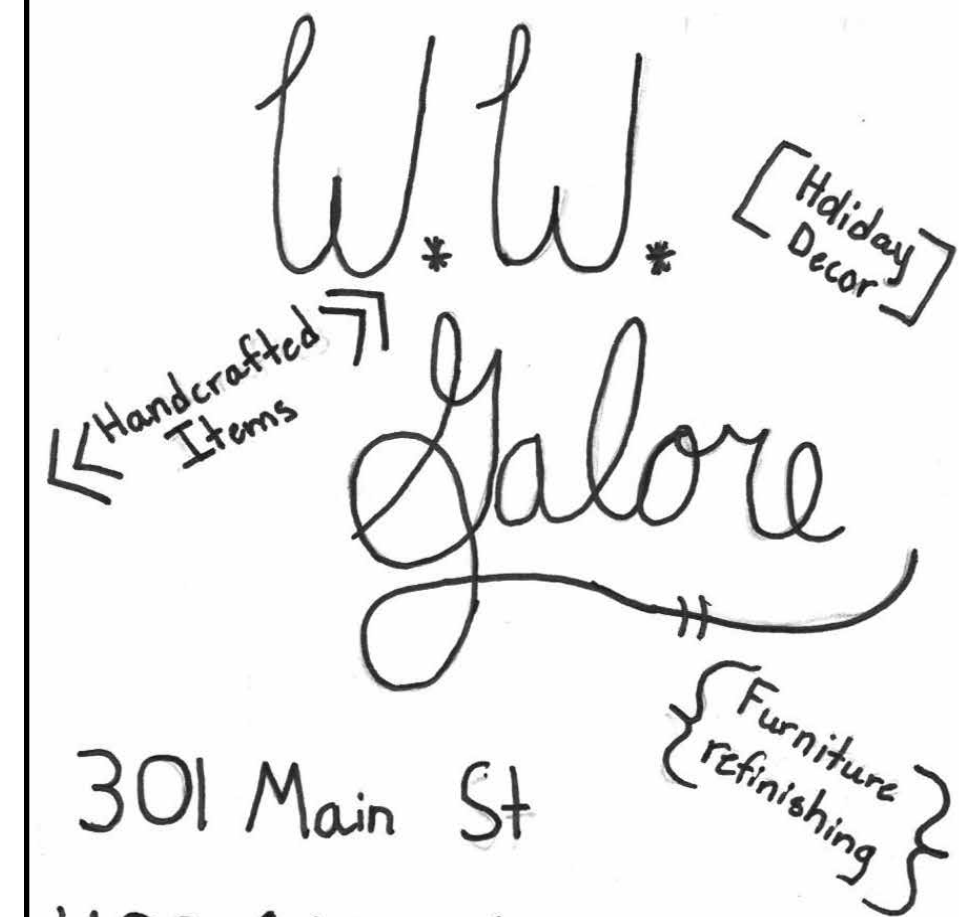 W.W.
[Holiday
Decor]
<<Handcrafted>>
Items
Galore
{Furniture
refinishing}
301 Main St